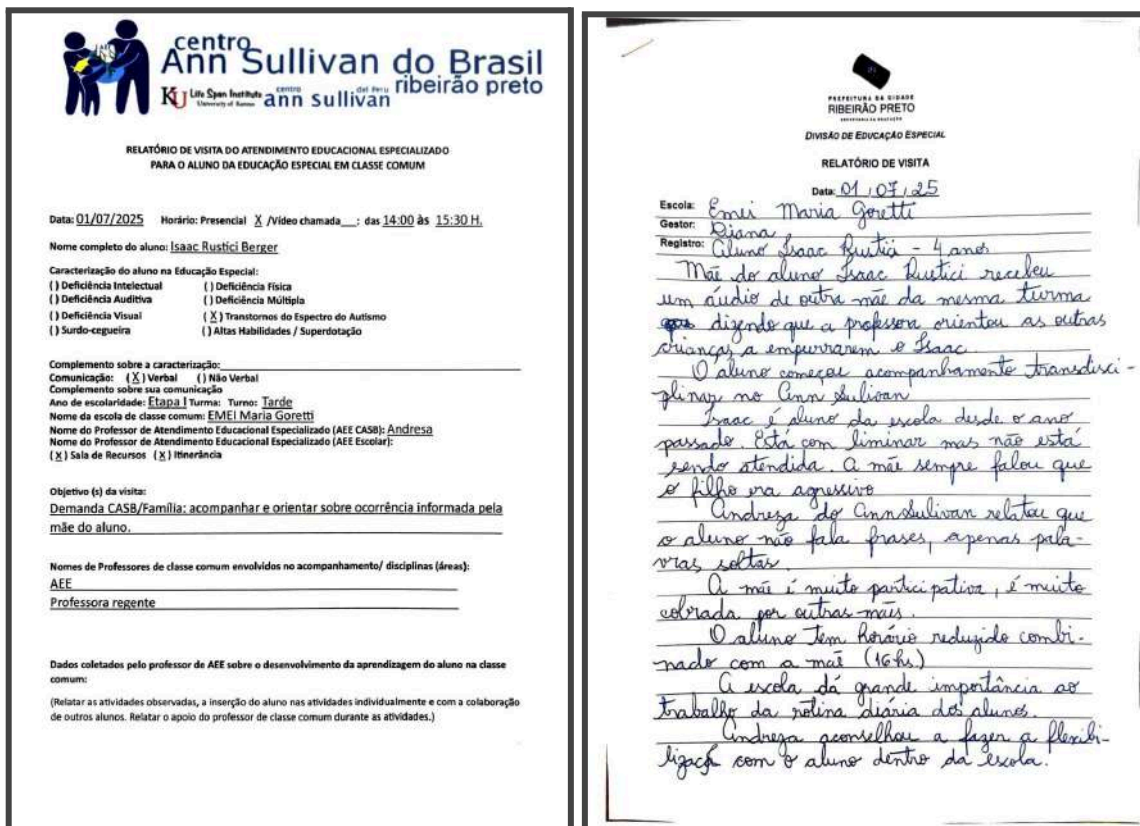 centro
Ann Sullivan do Brasil
ribeirão preto
KU Life Span Institute
University of Kansas
centro
ann sullivan
del Peru
RELATÓRIO DE VISITA DO ATENDIMENTO EDUCACIONAL ESPECIALIZADO
PARA O ALUNO DA EDUCAÇÃO ESPECIAL EM CLASSE COMUM
Data: 01/07/2025 Horário: Presencial X /Vídeo chamada__: das 14:00 às 15:30 H.
Nome completo do aluno: Isaac Rustici Berger
Caracterização do aluno na Educação Especial:
( ) Deficiência Intelectual ( ) Deficiência Física
( ) Deficiência Auditiva ( ) Deficiência Múltipla
( ) Deficiência Visual ( X ) Transtornos do Espectro do Autismo
( ) Surdo-cegueira ( ) Altas Habilidades / Superdotação
Complemento sobre a caracterização:
Comunicação: ( X ) Verbal ( ) Não Verbal
Complemento sobre sua comunicação
Ano de escolaridade: Etapa I Turma: Turno: Tarde
Nome da escola de classe comum: EMEI Maria Goretti
Nome do Professor de Atendimento Educacional Especializado (AEE CASB): Andresa
Nome do Professor de Atendimento Educacional Especializado (AEE Escolar):
( X ) Sala de Recursos ( X ) Itinerância
Objetivo (s) da visita:
Demanda CASB/Família: acompanhar e orientar sobre ocorrência informada pela
mãe do aluno.
Nomes de Professores de classe comum envolvidos no acompanhamento/ disciplinas (áreas):
AEE
Professora regente
Dados coletados pelo professor de AEE sobre o desenvolvimento da aprendizagem do aluno na classe
comum:
(Relatar as atividades observadas, a inserção do aluno nas atividades individualmente e com a colaboração
de outros alunos. Relatar o apoio do professor de classe comum durante as atividades.)
PREFEITURA DA CIDADE
RIBEIRÃO PRETO
SECRETARIA DA EDUCAÇÃO
DIVISÃO DE EDUCAÇÃO ESPECIAL
RELATÓRIO DE VISITA
Data: 01/07/25
Escola: Emei Maria Goretti
Gestor: Diana
Registro: Aluno Isaac Rustici - 4 anos
Mãe do aluno Isaac Rustici recebeu
um áudio de outra mãe da mesma turma
dizendo que a professora orientou as outras
crianças a empurrarem o Isaac.
O aluno começou acompanhamento transdisci-
plinar no Ann Sulivan
Isaac é aluno da escola desde o ano
passado. Está com liminar mas não está
sendo atendida. A mãe sempre falou que
o filho era agressivo
Andreza do Ann Sulivan relatou que
o aluno não fala frases, apenas pala-
vras soltas.
A mãe é muito participativa, é muito
cobrada por outras mães.
O aluno tem horário reduzido combi-
nado com a mãe (16hs.)
A escola dá grande importância ao
trabalho da rotina diária dos alunos.
Andreza aconselhou a fazer a flexibi-
lizaçã com o aluno dentro da escola.